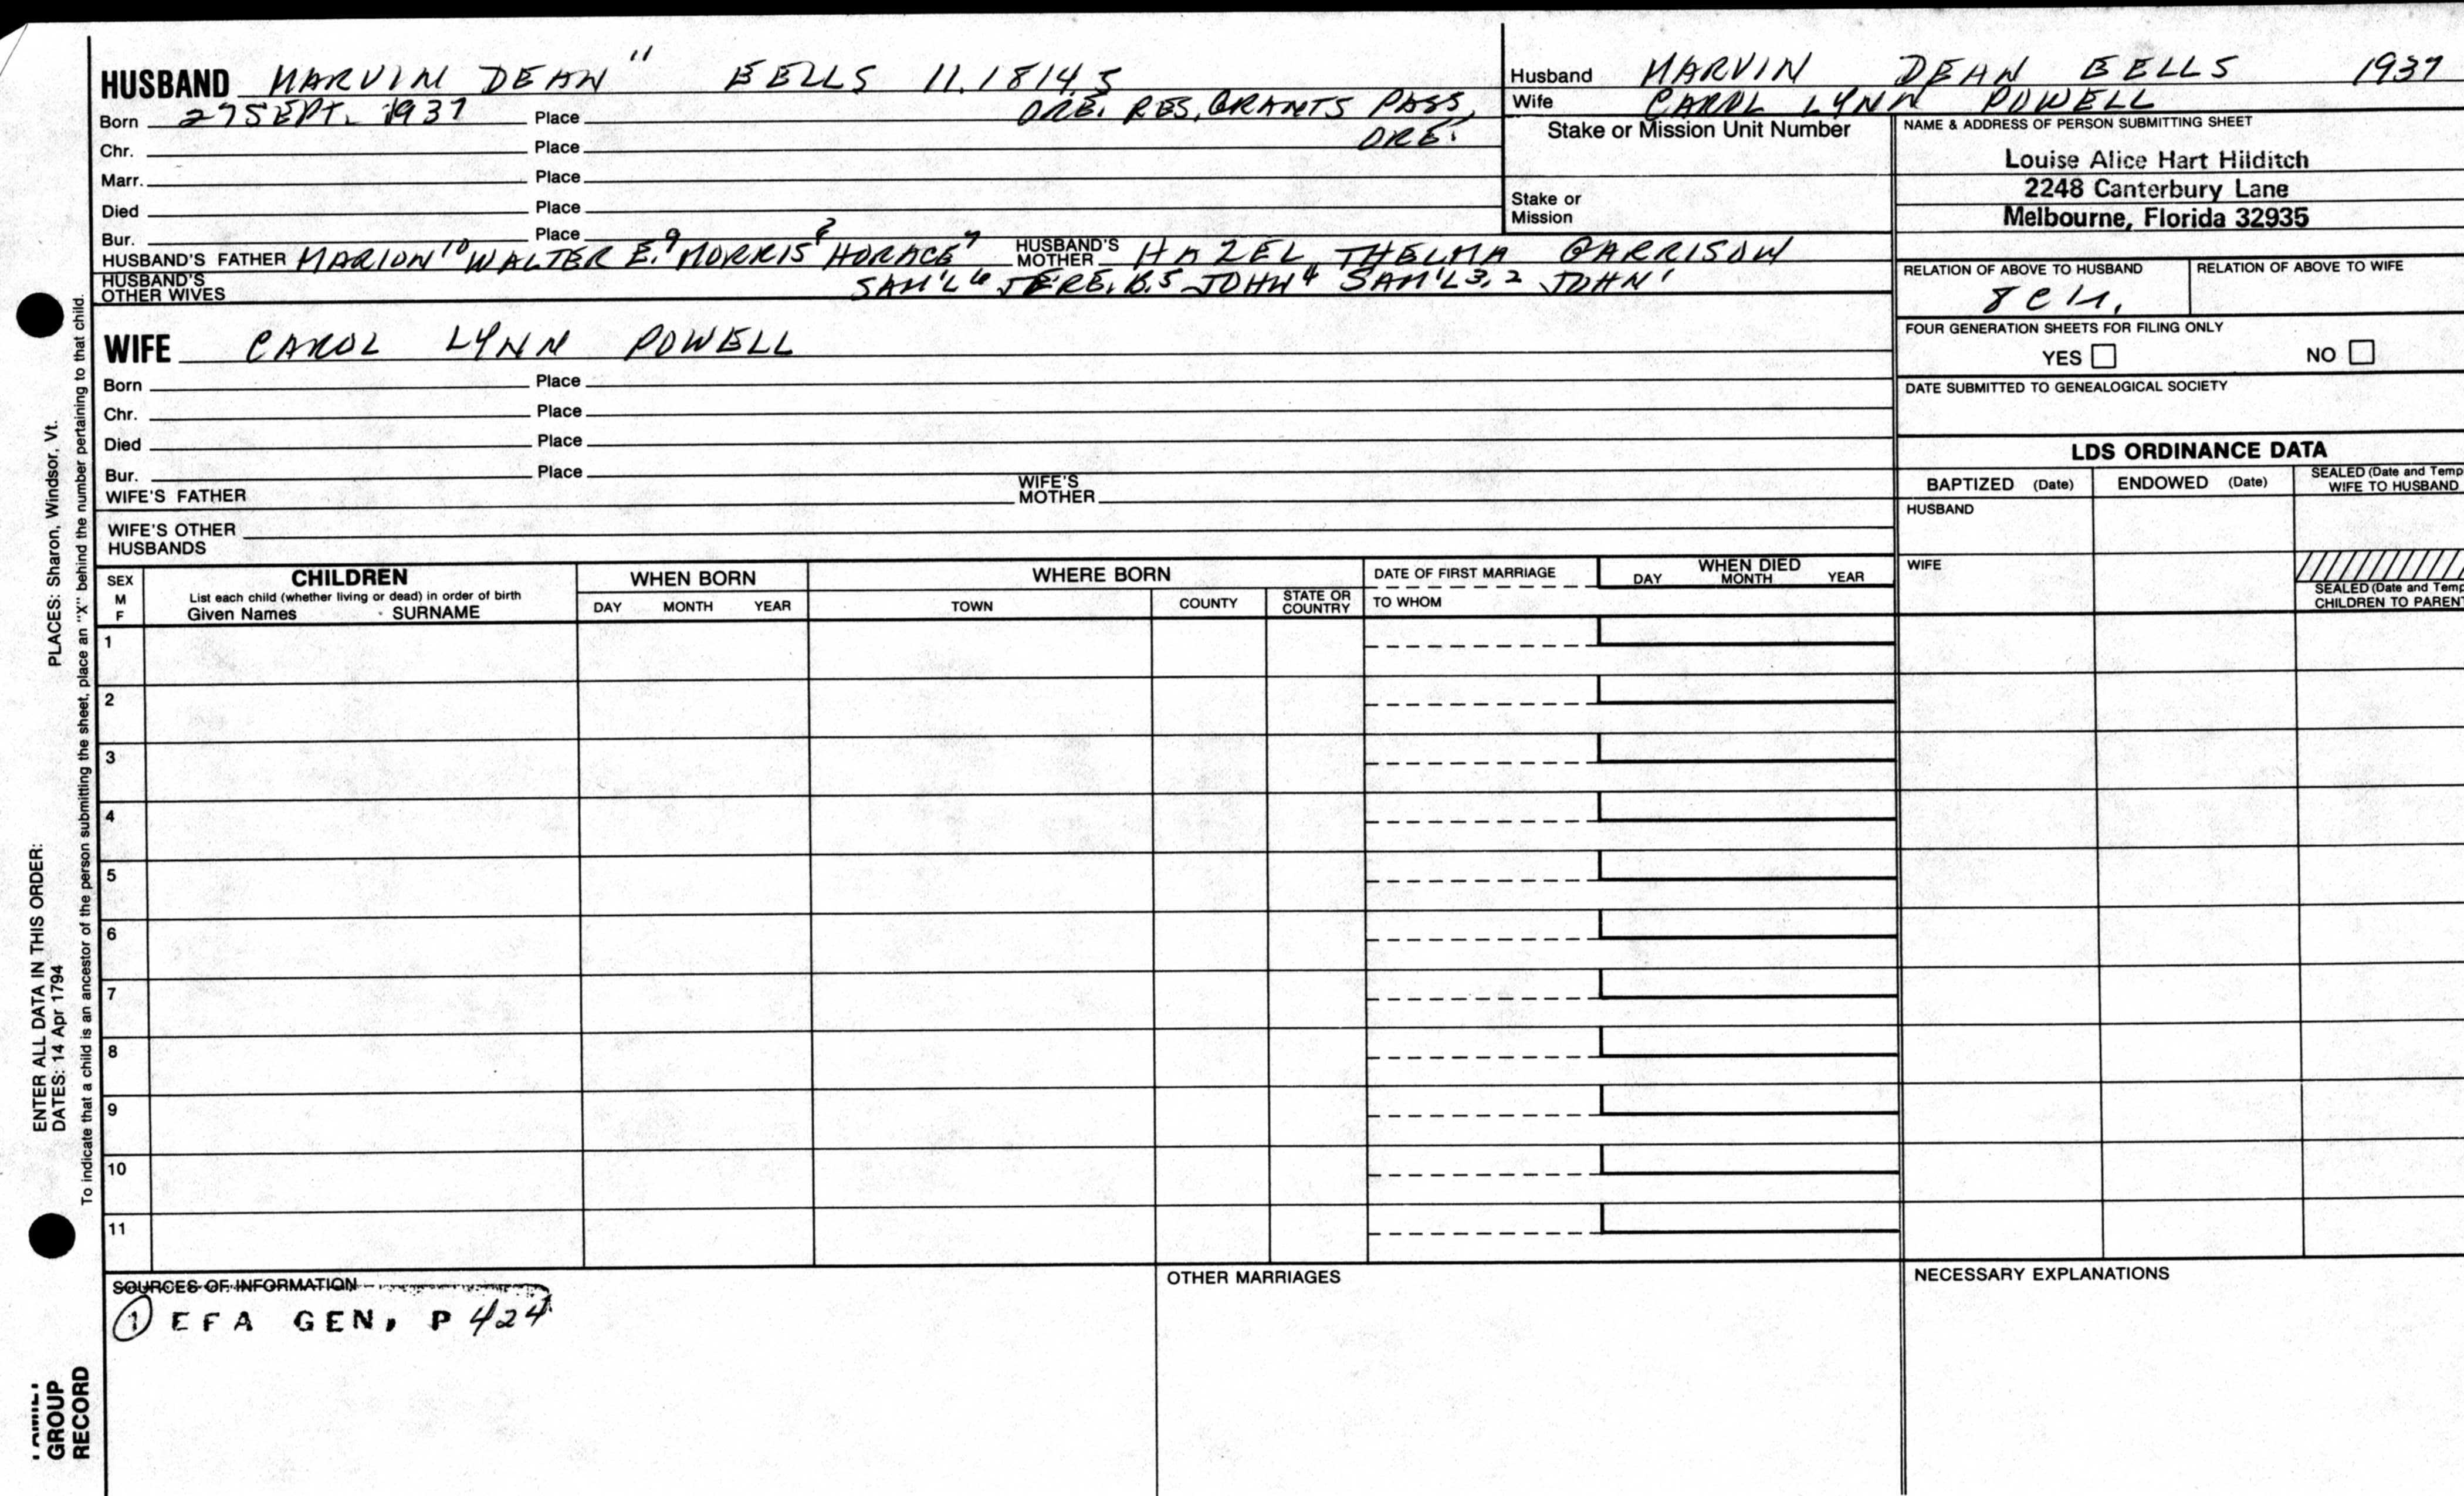 HUSBAND MARVIN DEAN 11 EELLS 11.1814.5
Born 27 SEPT. 1937 Place ORE. RES, GRANTS PASS,
ORE.
Chr. Place
Marr. Place
Died Place
Bur. Place
HUSBAND'S FATHER MARION 10 WALTER E. 9 MORRIS 8 HORACE 7 HUSBAND'S MOTHER HAZEL THELMA GARRISON
HUSBAND'S OTHER WIVES SAM'L 6 JERE. B. 5 JOHN 4 SAM'L 3, 2 JOHN 1
WIFE CAROL LYNN POWELL
Born Place
Chr. Place
Died Place
Bur. Place
WIFE'S FATHER WIFE'S MOTHER
WIFE'S OTHER HUSBANDS
Husband MARVIN DEAN EELLS 1937
Wife CAROL LYNN POWELL
Stake or Mission Unit Number
Stake or
Mission
NAME & ADDRESS OF PERSON SUBMITTING SHEET
Louise Alice Hart Hilditch
2248 Canterbury Lane
Melbourne, Florida 32935
RELATION OF ABOVE TO HUSBAND RELATION OF ABOVE TO WIFE
FOUR GENERATION SHEETS FOR FILING ONLY
YES NO
DATE SUBMITTED TO GENEALOGICAL SOCIETY
LDS ORDINANCE DATA
BAPTIZED (Date) ENDOWED (Date) SEALED (Date and Temp
WIFE TO HUSBAND
HUSBAND
WIFE
SEALED (Date and Temp
CHILDREN TO PARENT
SEX
M
F
CHILDREN
List each child (whether living or dead) in order of birth
Given Names SURNAME
WHEN BORN
DAY MONTH YEAR
WHERE BORN
TOWN COUNTY STATE OR COUNTRY
DATE OF FIRST MARRIAGE
TO WHOM
WHEN DIED
DAY MONTH YEAR
1
2
3
4
5
6
7
8
9
10
11
SOURCES OF INFORMATION
1 EFA GEN, P 424
OTHER MARRIAGES
NECESSARY EXPLANATIONS
PLACES: Sharon, Windsor, Vt.
ENTER ALL DATA IN THIS ORDER:
DATES: 14 Apr 1794
To indicate that a child is an ancestor of the person submitting the sheet, place an "X" behind the number pertaining to that child.
GROUP
RECORD